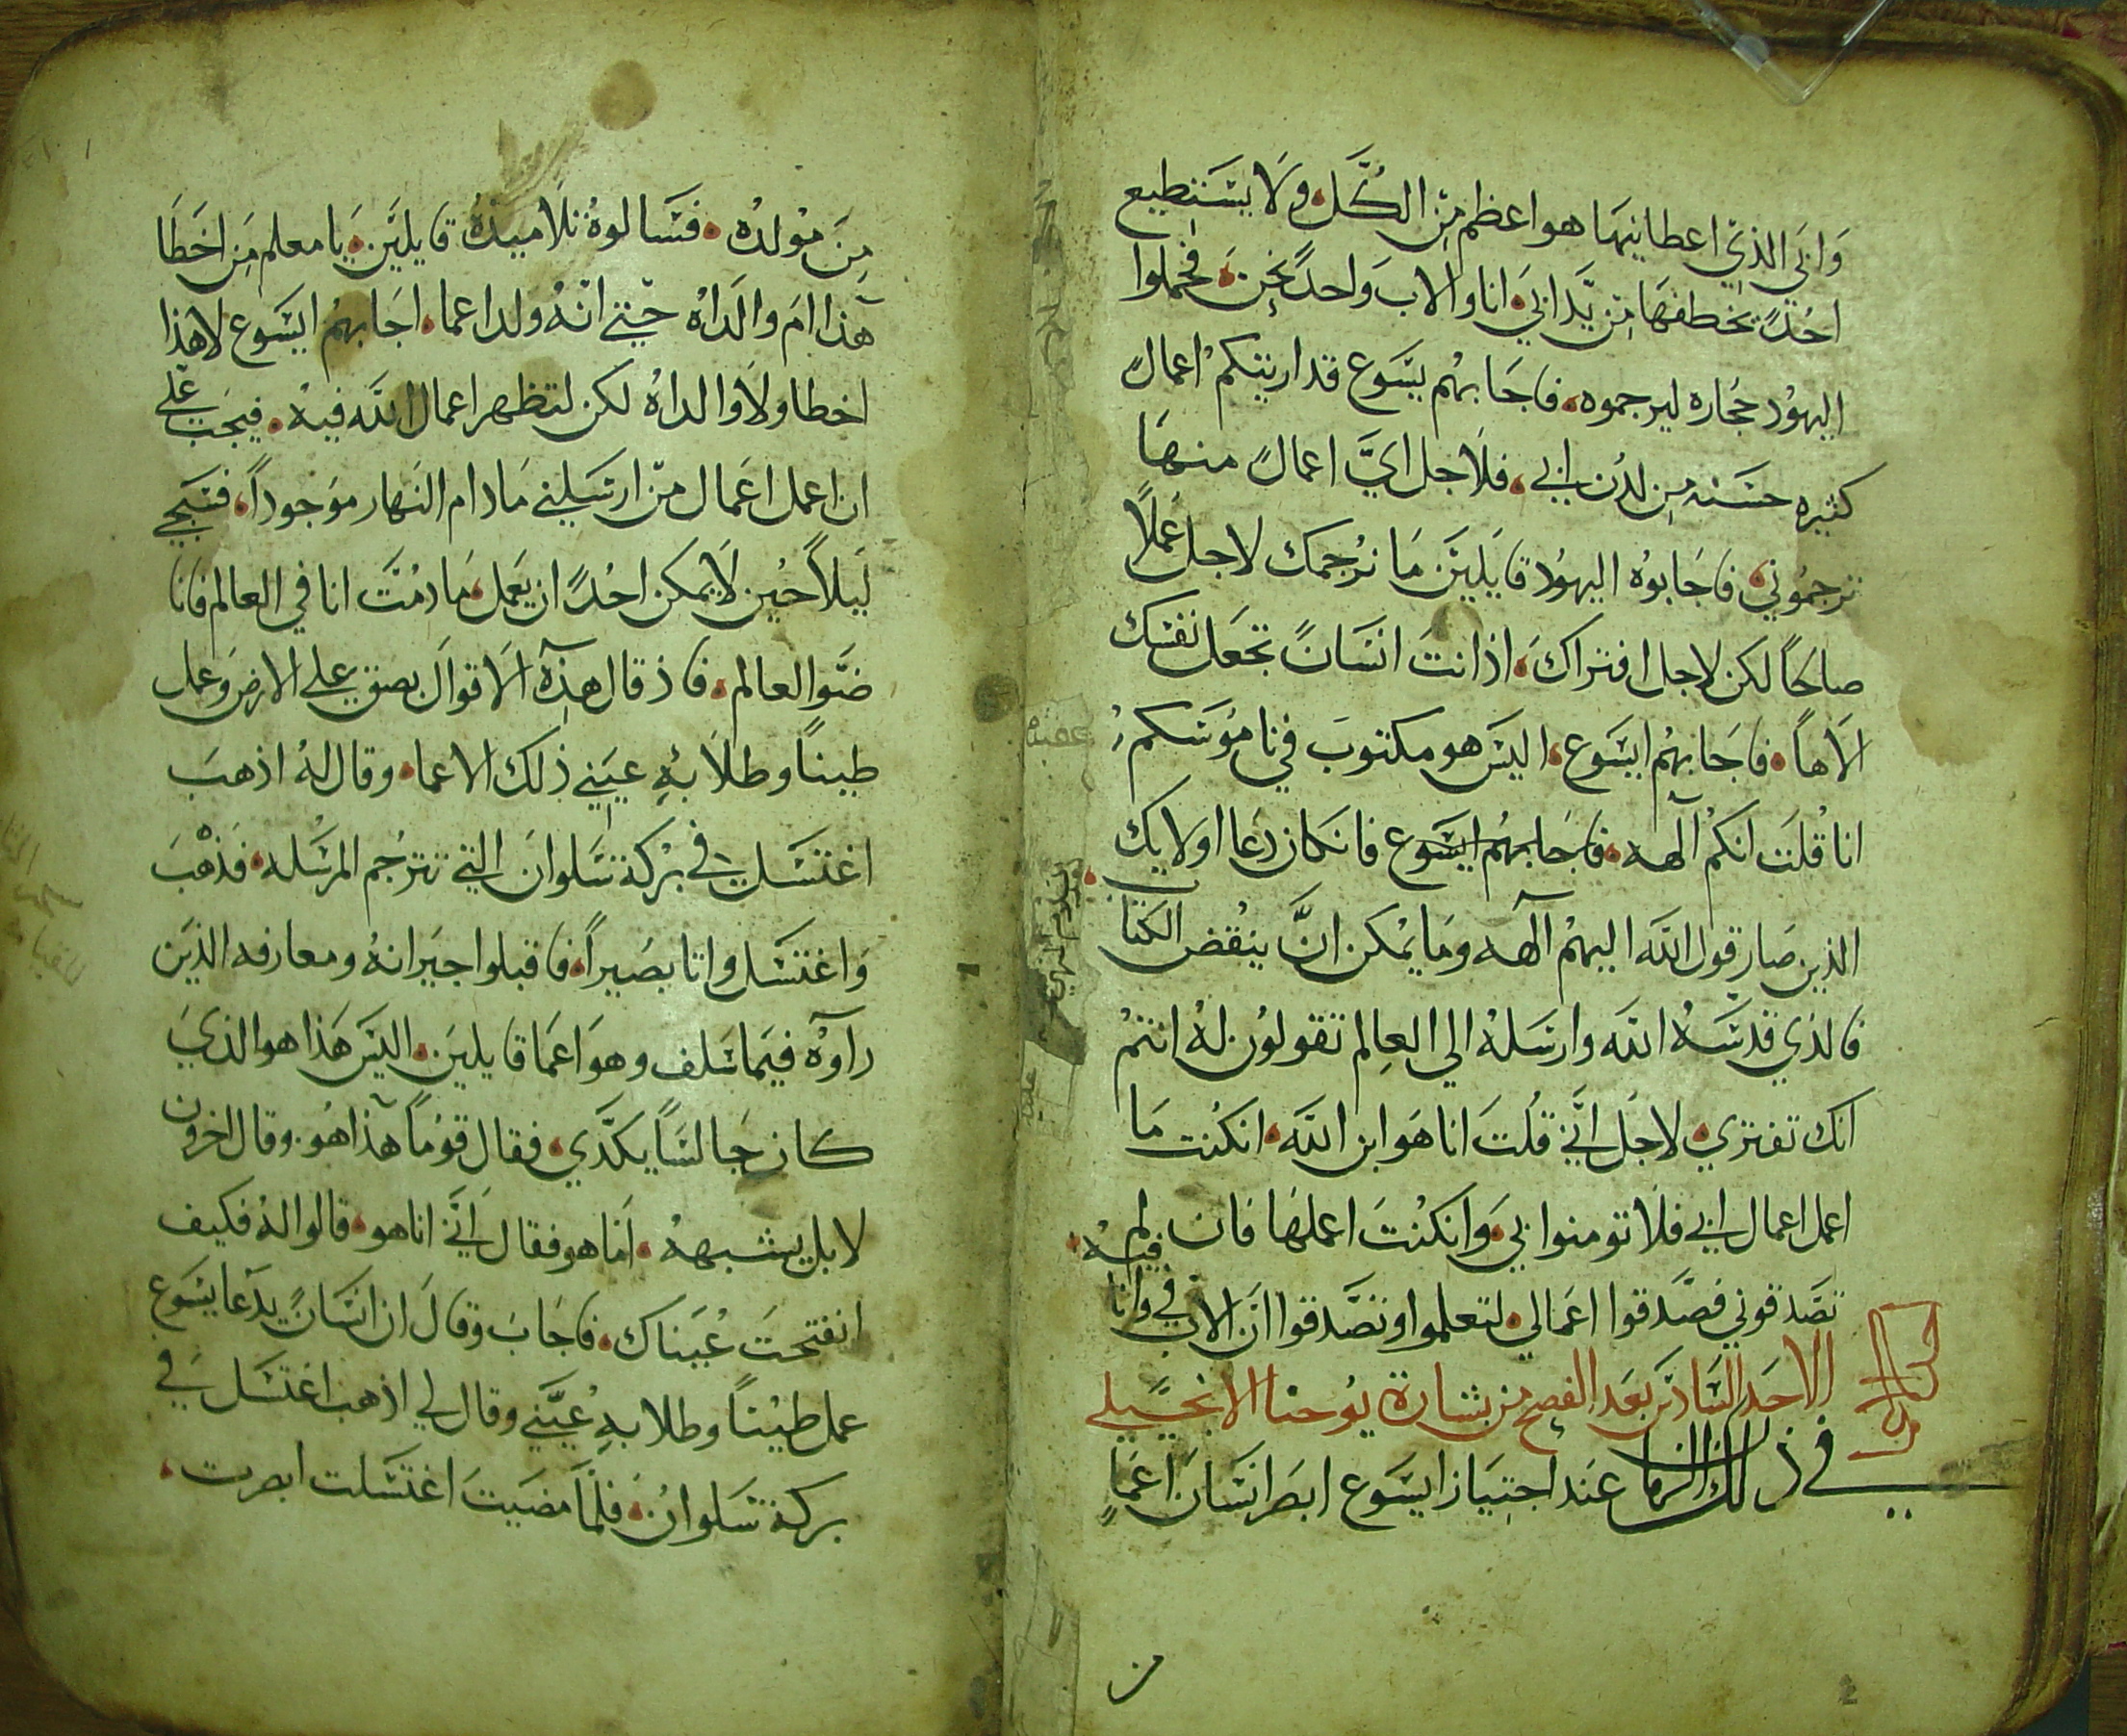 وَابَي الذيّ اعطانيهَا هو اعظم مِّن الكُّلَ، ولَا يسَتَطيع
احُدً يخطفهَا مِّن يَّد ابيَ، انا والاب وَاحدً نحِنَ، فحملوا
اليهوُد حجَاره ليرجموه، فاجَابهُم يسَّوع قد اريتكمْ اعمالً
كثيره حسَنه مِن لدُن ابي، فلَاجل ايَّ اعمالً منهَا
ترجمُوني، فاجَابوُه اليهوُد قايَليَن مَا نرُجمك لاجل عَملاً
صاحَاً لكن لاجل افتراكَ، اذ انتَ انسَانً تجعَل نفسَك
الاهاً، فاجَابهُم ايسَّوع، اليسَ هو مكتوبَ في نامُوسَكم
انا قُلتَ انكمُ آلهه، فاجَابهُم ايسَّوع فانكان دَعَا اولايك
الذين صَار قول اللّه اليهمْ آلهه ومَا يمْكن انَّ ينْقض الكتاب
فالذي قدسَّهُ اللّه وارسَلهُ الي العالِم تقولوُن لهُ انتمْ
انك تفتري، لاجَل انَّي قُلتَ انا هَو ابن اللّه، انكنُت مَا
اعمل اعمال ابي فلَا تومنوا بيَ، وَانكنُتَ اعملهَا فان لم
تصَدقوني فصَّدقوا اعمَالي، لتعلموا وتصَّدقوا انَ الاب فيَ وانا فيهُ،
الاحَد السَّادسَ بَعَد الفصِح من بشارة يُوحنا الانجيلي
في ذلك الزمان عنَد اجتيَاز ايسَّوع ابصَر انسَانَ اعمَا
من
مِنَ موُلدُه، فسَالوهُ تلَاميذُهُ قايليَن، يَا معلم مَن اخَطَا
هَذا امَ والَداهُ حتَي انَهُ ولد اعما، اجَابهُم ايسَّوع لا هذا
اخطا ولَا والداهُ لكن لتظهر اعمال اللّه فيهُ، فيجَب عَلي
ان اعمل اعَمال منّ ارسَلني مَا دام النهار موَجوداً، فسَيجي
لَيلَاً حُين لَا يمكن احُدً ان يَعمل، مَا دمُتَ انا في العالم فانا
ضَّو العالم، فاذ قال هذِه الَاقوالَ بصق علي الارض وعَمل
طيناً وطلَا بهِ عيَني ذلك الاعما، وقال لهُ اذهبَ
اغتسَل في برْكة سَلوانَ التي تترجَم المرسَله، فذهْبَ
وَاغتسَل واتا بصَيراً، فاقبلوا جيَرانهُ ومعارفه الذيَن
راوَهُ فيمَا سَلف وهوَ اعمَا قايلينَ، اليسَ هَذا هو الذيَ
كان جَالسَاً يكدَّي، فقال قوُماً هَذا هُو، وقال اخرون
لا بل يشبههُ، اَما هو فقال انَّي انا هو، قالوا لهُ فكيف
انفتحَت عُيَناك، فاجَابَ وقالَ ان انسَانً يدَعا يسَوع
عمل طيُناً وطلا بهِ عُيَني وقال لي اذهب اغتسَل في
بركة سَلوانُ، فلمَا مضَيتَ اغتسَلت ابصرت،